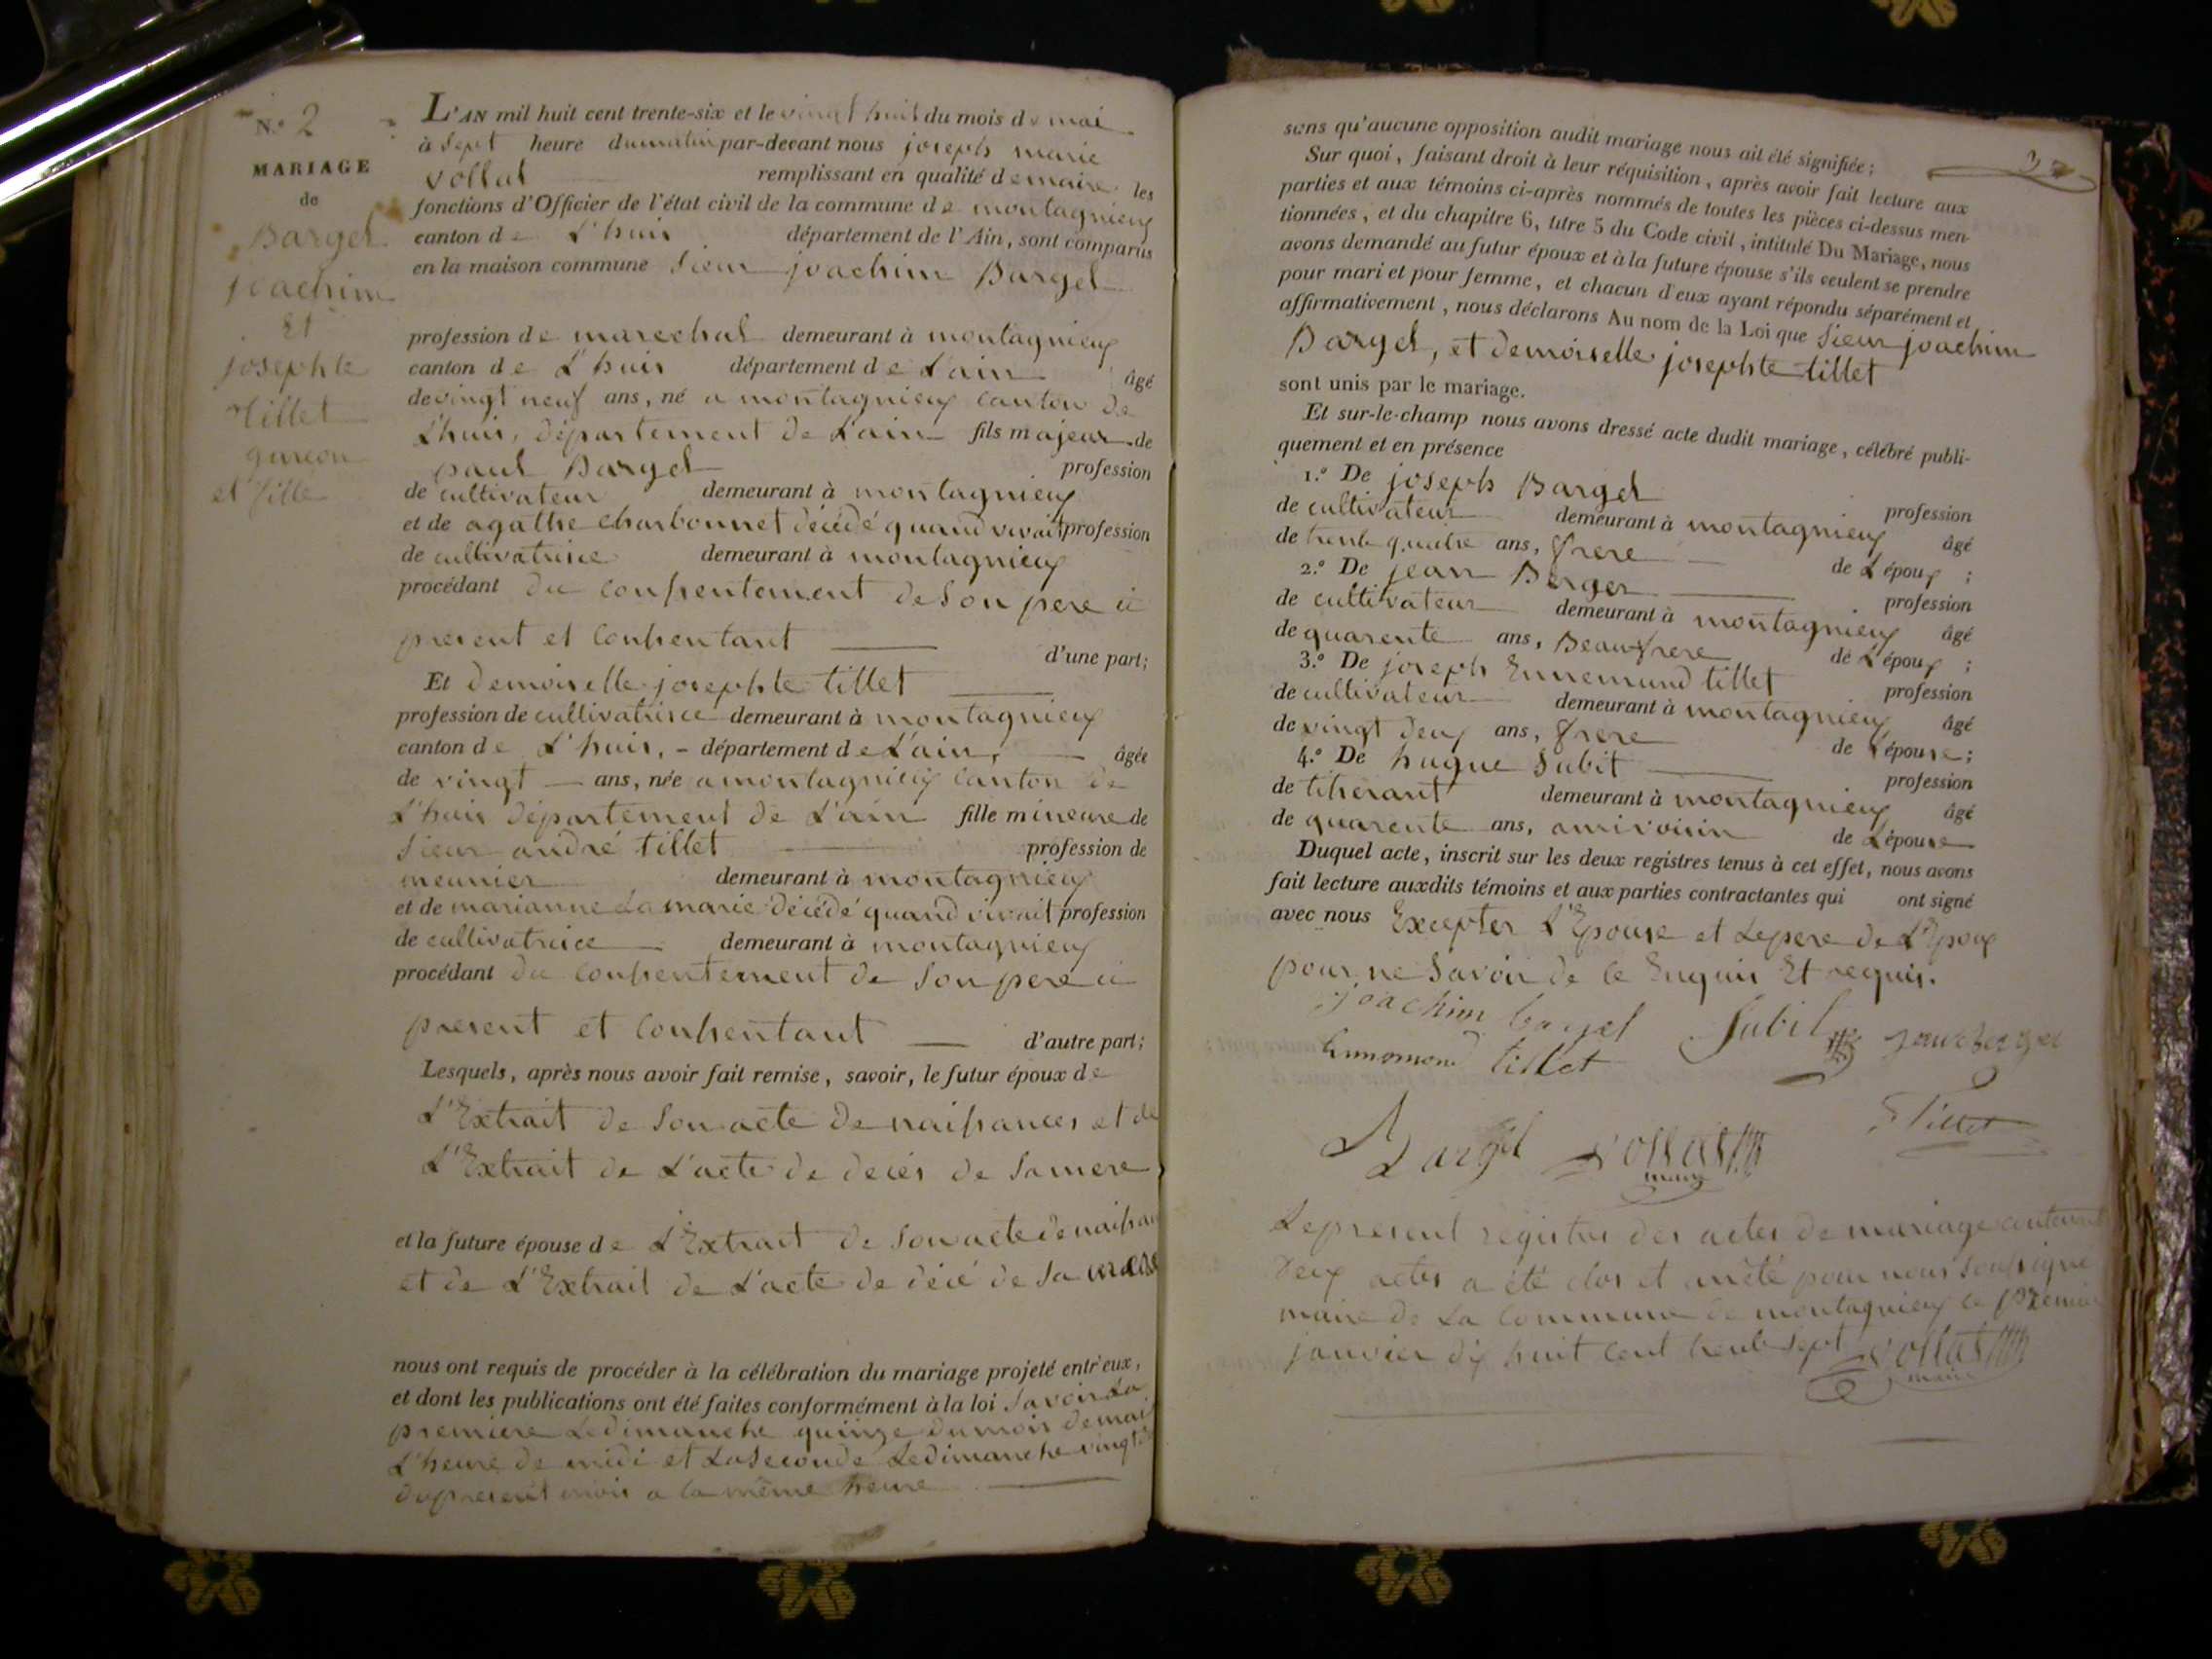 N.º 2
MARIAGE
de
Bargel
joachim
Et
josephte
tillet
garcon
et fille
L'AN mil huit cent trente-six et le vingt huit du mois de mai
à sept heure du matin par-devant nous joseph marie
vollat remplissant en qualité de maire les
fonctions d'Officier de l'état civil de la commune de montagnieu
canton de L'huis département de l'Ain, sont comparus
en la maison commune Sieur joachim Bargel
profession de marechal demeurant à montagnieux
canton de L'huis département de L'ain âgé
de vingt neuf ans, né a montagnieux canton de
L'huis, département de L'ain fils majeur de
paul Bargel profession
de cultivateur demeurant à montagnieux
et de agathe charbonnet décédé quand vivait profession
de cultivatrice demeurant à montagnieux
procédant du consentement de son pere ci
present et consentant d'une part;
Et demoiselle josephte tillet
profession de cultivatrice demeurant à montagnieux
canton de L'huis, - département de L'ain, âgée
de vingt ans, née a montagnieux canton de
L'huis département de L'ain fille mineure de
Sieur andré tillet profession de
meunier demeurant à montagnieux
et de marianne La marie décédé quand vivait profession
de cultivatrice demeurant à montagnieux
procédant du consentement de son pere ci
present et consentant d'autre part;
Lesquels, après nous avoir fait remise, savoir, le futur époux de
L'Extrait de son acte de naissances et de
L'Extrait de L'acte de deces de sa mere
et la future épouse de L'Extrait de son acte de naissan
et de L'Extrait de L'acte de décé de sa mere
nous ont requis de procéder à la célébration du mariage projeté entr'eux,
et dont les publications ont été faites conformément à la loi Savoir La
premiere Le dimanche quinze du mois de mai
L'heure de midi et La Seconde Le dimanche vingt
du present mois a la même heure
sans qu'aucune opposition audit mariage nous ait été signifiée;
Sur quoi, faisant droit à leur réquisition, après avoir fait lecture aux
parties et aux témoins ci-après nommés de toutes les pièces ci-dessus men-
tionnées, et du chapitre 6, titre 5 du Code civil, intitulé Du Mariage, nous
avons demandé au futur époux et à la future épouse s'ils veulent se prendre
pour mari et pour femme, et chacun d'eux ayant répondu séparément et
affirmativement, nous déclarons Au nom de la Loi que Sieur joachim
Bargel, et demoiselle josephte tillet
sont unis par le mariage.
Et sur-le-champ nous avons dressé acte dudit mariage, célébré publi-
quement et en présence
1.º De joseph Bargel profession
de cultivateur demeurant à montagnieux âgé
de trente quatre ans, frere de L'époux ;
2.º De jean Berger profession
de cultivateur demeurant à montagnieux âgé
de quarente ans, Beaufrere de L'époux ;
3.º De joseph Ennemund tillet profession
de cultivateur demeurant à montagnieux âgé
de vingt deux ans, frere de L'épouse ;
4.º De hugue Subit profession
de tisserant demeurant à montagnieux âgé
de quarente ans, ami voisin de L'épouse
Duquel acte, inscrit sur les deux registres tenus à cet effet, nous avons
fait lecture auxdits témoins et aux parties contractantes qui ont signé
avec nous Excepter L'Epouse et Le pere de L'Epoux
pour ne Savoir de ce Enquis Et requis.
joachim bargel Subit jean berger
Ennomond tillet
Bargel Vollat Tillet
maire
Le present registre des actes de mariage contenant
deux actes a été clos et arrêté pour nous soussigné
maire de La Commune de montagnieux ce premier
janvier dix huit cent trente sept Vollat
maire